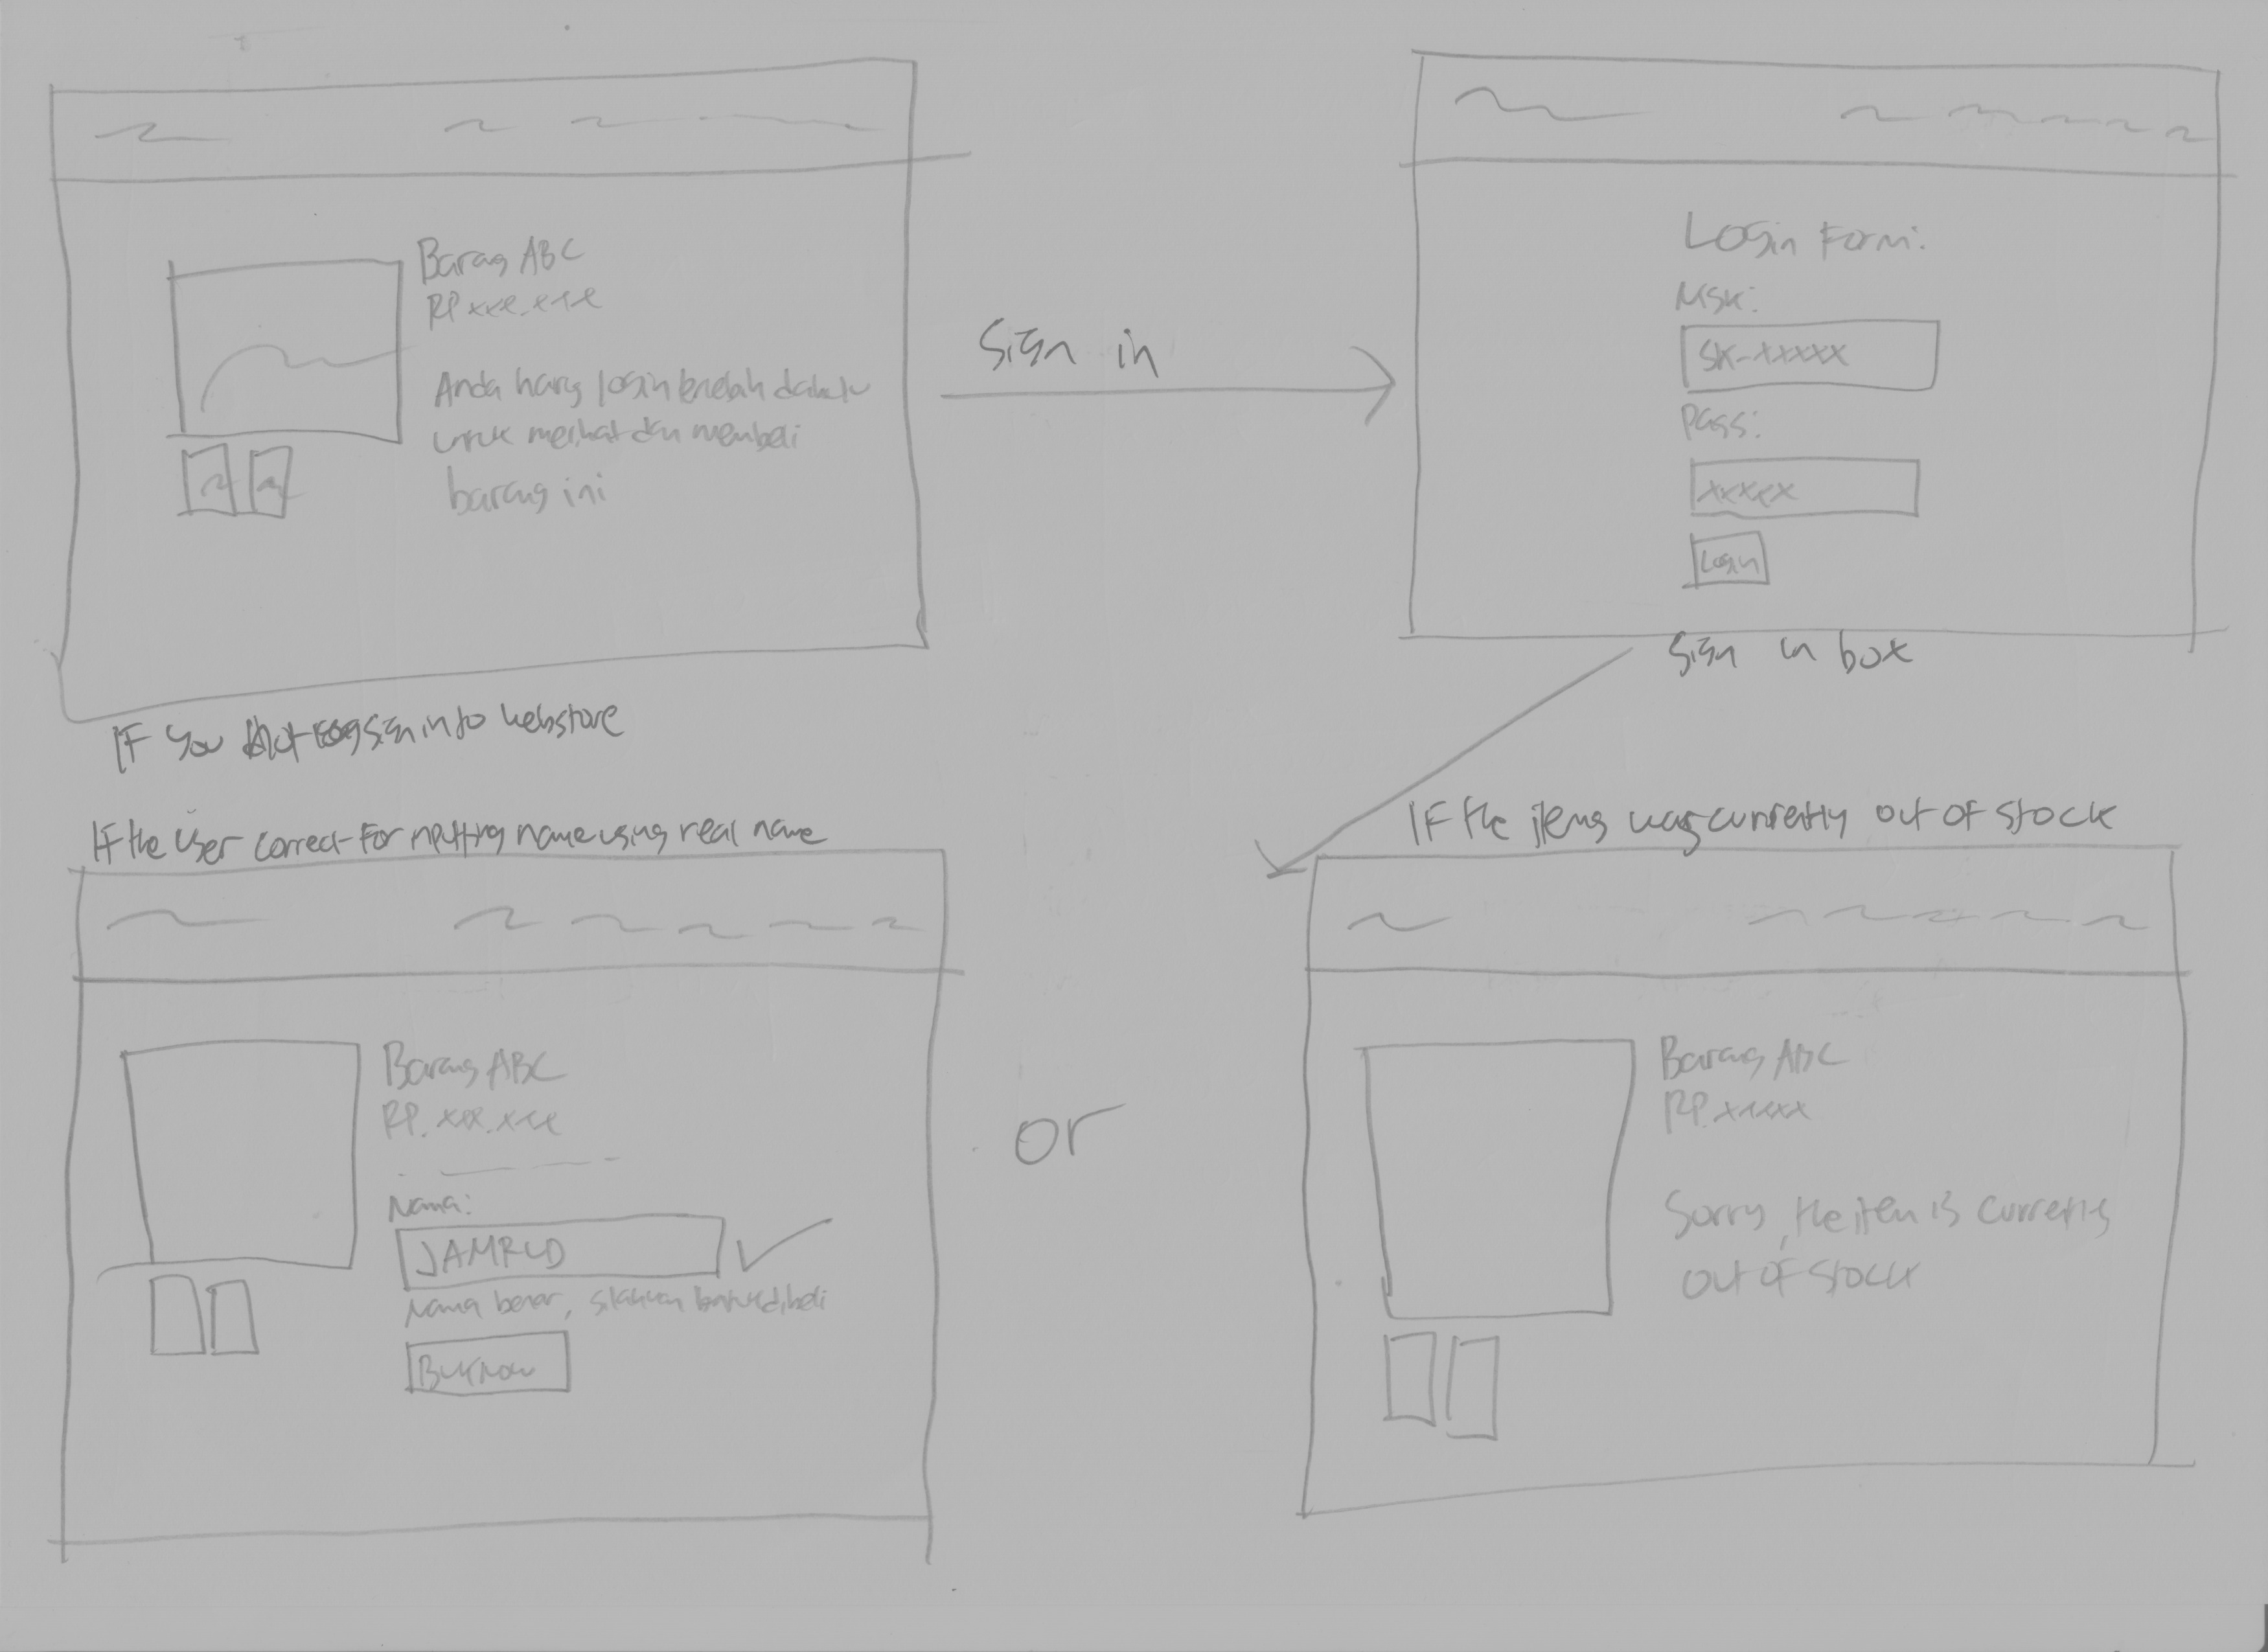 Barang ABC
RP xxx.xxx
Anda harus login terlebih dahulu
untuk melihat dan membeli
barang ini
IF you not sign into webstore
Sign in
Login Form:
SK-xxxxx
Pass:
xxxxx
Login
Sign in box
IF the user correct for inputting name using real name
Barang ABC
RP. xxx.xxx
Nama:
JAMRUD
Nama benar, silahkan untuk dibeli
Buy now
or
IF the items was currently out of stock
Barang ABC
RP. xxxxx
Sorry, the item is currently
out of stock